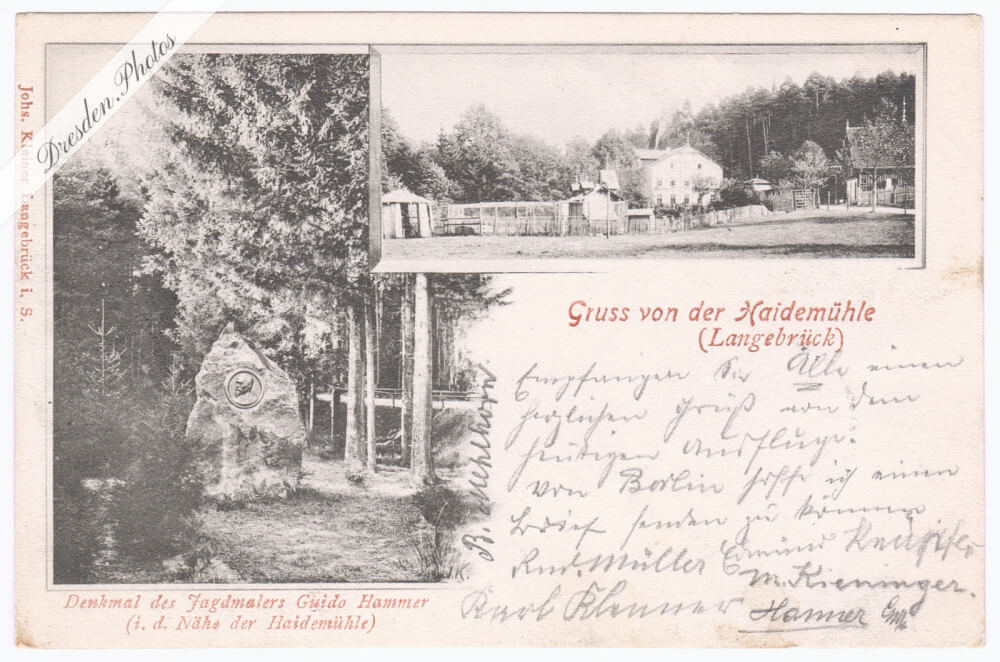 Dresden.Photos
Johs. Kießler Langebrück i. S.
Gruss von der Haidemühle
(Langebrück)
Empfangen Sie Alle einen
herzlichen Gruß von dem
heutigen Ausfluge.
Von Berlin hoffe ich einen
Brief senden zu können
Rud. Müller Edmund
M. Kieninger.
Karl Klemmer
B. Mehlhorn
Denkmal des Jagdmalers Guido Hammer
(i. d. Nähe der Haidemühle)